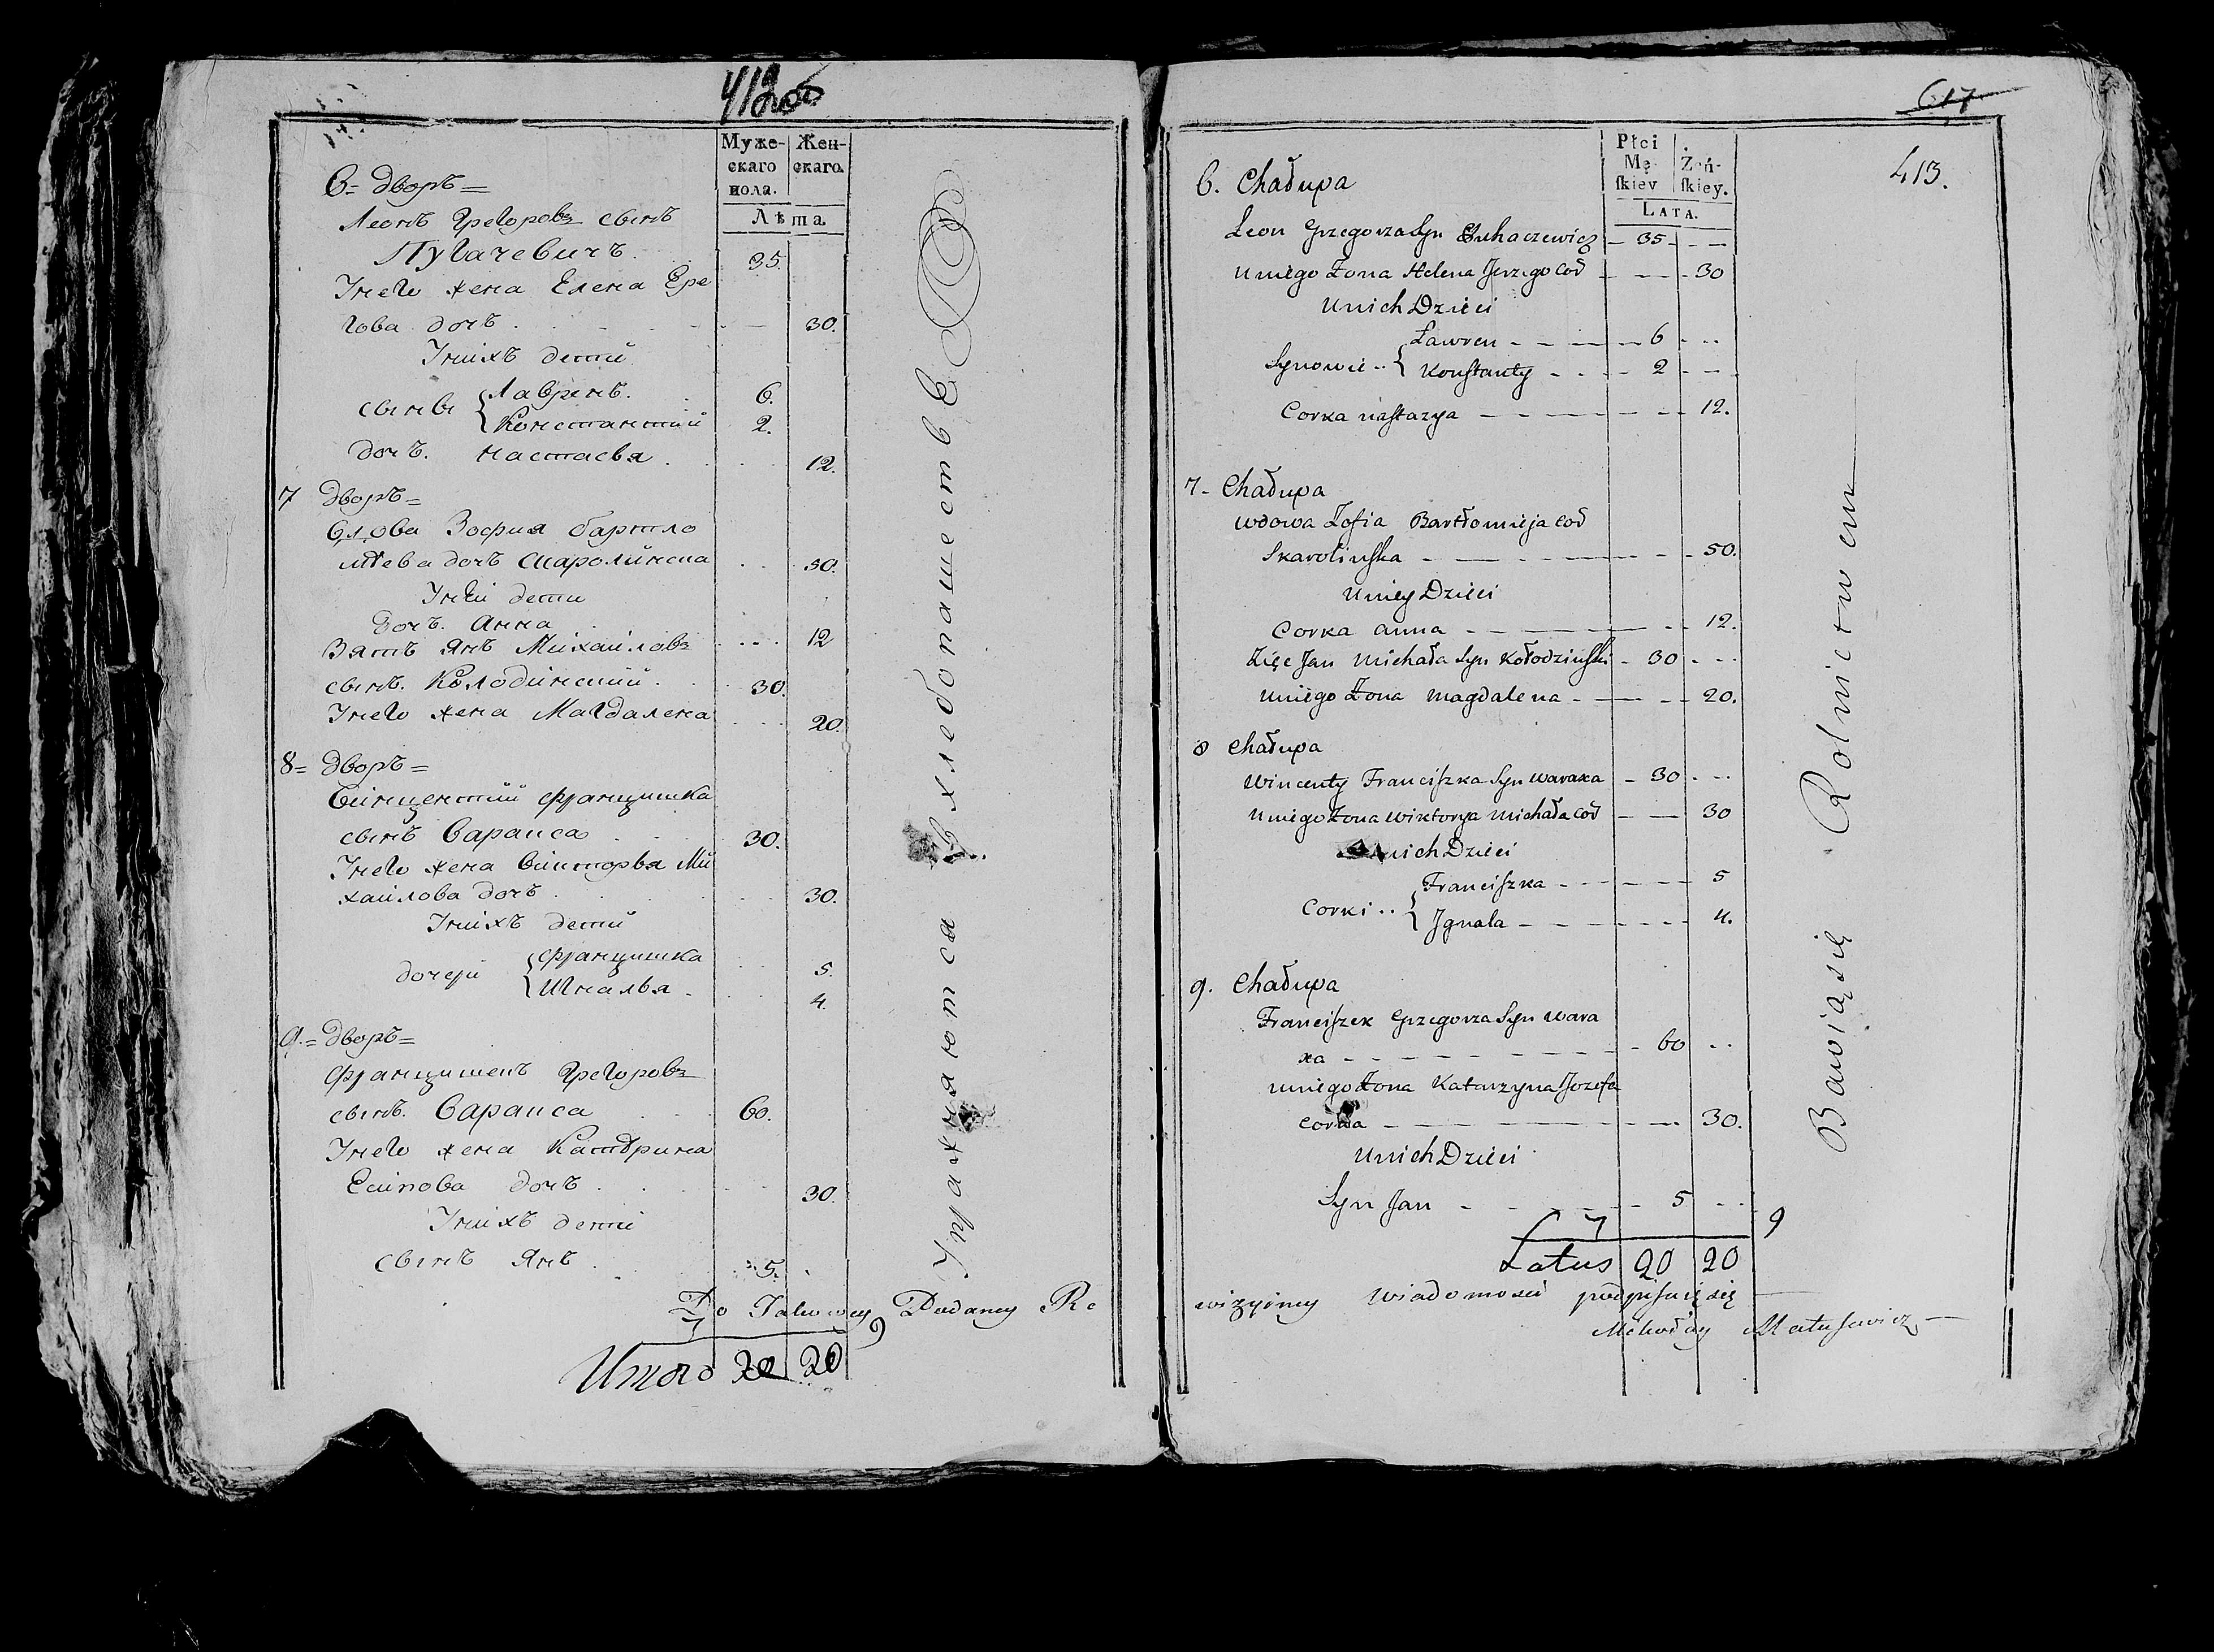 412об
Муже-
скаго
пола.
Жен-
скаго.
Лѣта.
6= дворъ=
Леонъ Грегоровъ сынъ
Пугачевичъ. 35.
Унего жена Елена Ере
гова дочъ 30.
Унихъ дети
сынвы {Лавринъ. 6.
Константий 2.
дочъ. настасья 12.
7 дворъ=
вдова Зофия бартло
мѣева дочъ Скаролинска 50.
Уней дети
дочъ. Анна 12
Зять Янъ Михаиловъ
сынъ. Колодинский. 30.
Унего жена Магдалена 20.
8= дворъ=
Винцентий францишка
сынъ Варакса 30.
Унего жена Викторья Ми
хаилова дочъ 30.
Унихъ дети
дочери {францишка 5.
Игналья 4.
9.= дворъ=
францишекъ Грегоровъ
сынъ. Варакса 60.
Унего жена Катерина
Есипова дочъ 30.
Унихъ дети
сынъ Янъ 5.
Упражняются в хлебопашестве
Do Takowey Podaney Re
7 9
Итого 20 20
617
413.
Płci
Mę-
skiey
Żeń-
skiey.
LATA.
6. Chałupa
Leon Grzegorza Syn Puhaczewicz 35
Uniego Żona Helena Jerzego Cod 30
Unich Dzieci
Synowie {Ławren 6
Konstanty 2
Corka nastazya 12.
7- Chałupa
Wdowa Zofia Bartłomieja Cod
Skarolinska 50.
Uniey Dzieci
Corka anna 12.
Zięc Jan Michała Syn Kołodzinski 30
Uniego Żona Magdalena 20.
8 Chałupa
Wincenty Franciszka Syn Waraxa 30
Uniego Żona Wiktorya Michała Cod 30
Unich Dzieci
Corki {Franciszka 5
Jgnala 4.
9. Chałupa
Franciszek Grzegorza Syn Wara
xa 60
Uniego Żona Katarzyna Jozefa
Corka 30.
Unich Dzieci
Syn Jan 5
7 9
Latus 20 20
Bawią się Rolnictwem
wizyiney Wiadomosci podpisuię się
Mikołay Matusewicz